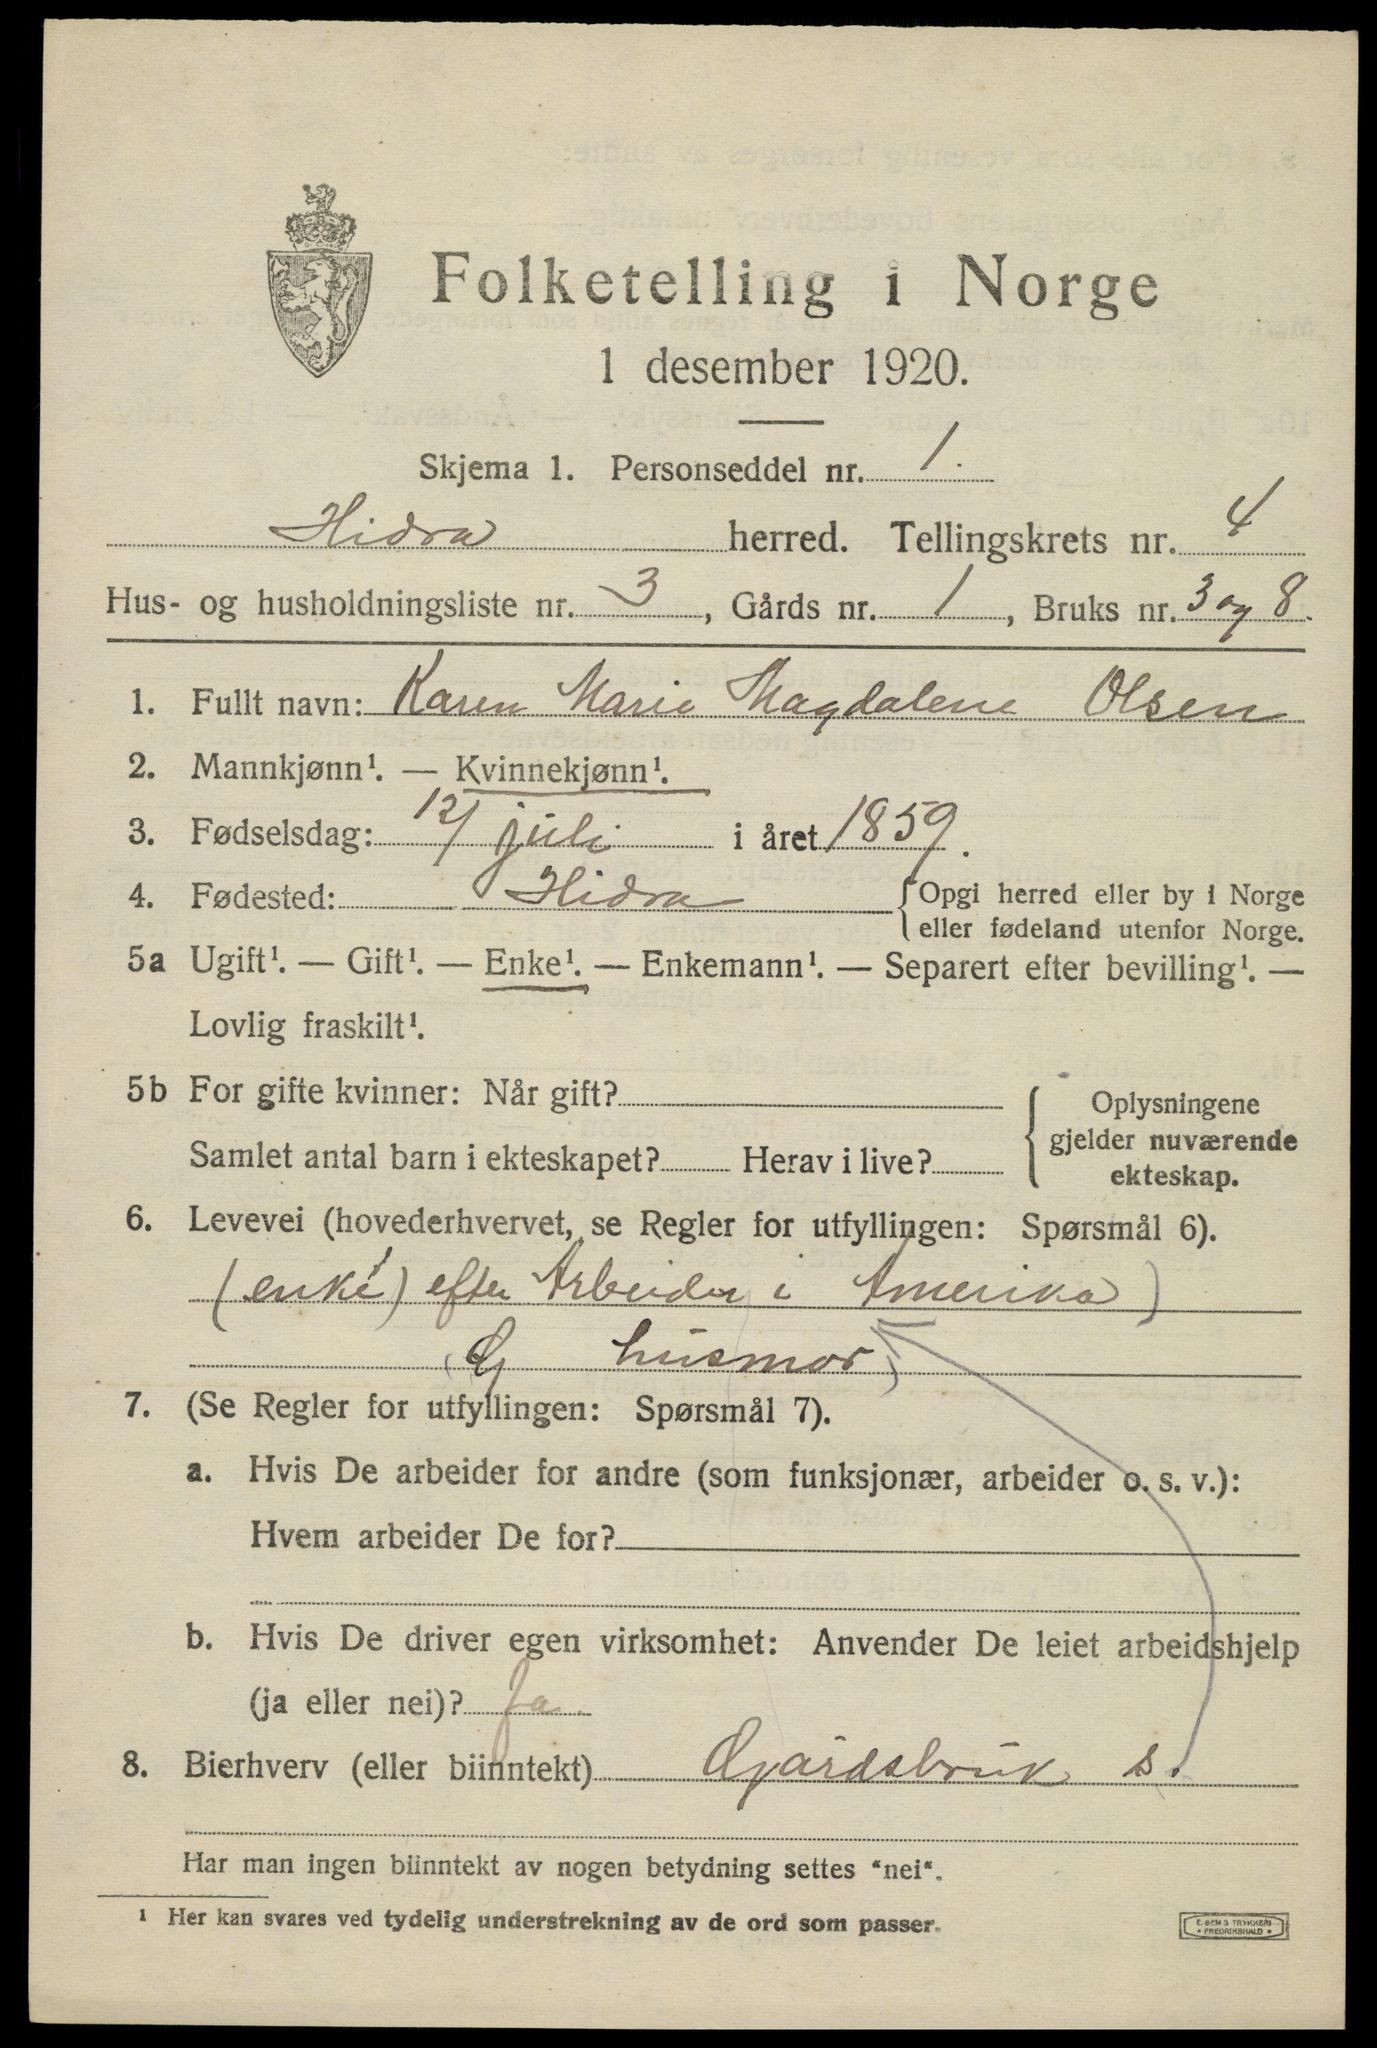 Folketelling i Norge
1 desember 1920.
Skjema 1. Personseddel nr. 1.
Hidra herred. Tellingskrets nr. 4
Hus- og husholdningsliste nr. 3, Gårds nr. 1, Bruks nr. 3 og 8.
1. Fullt navn: Karen Marie Magdalene Olsen
2. Mannkjønn¹. — Kvinnekjønn¹.
3. Fødselsdag: 12/ juli i året 1859.
4. Fødested: Hidra { Opgi herred eller by i Norge
eller fødeland utenfor Norge.
5a Ugift¹. — Gift¹. — Enke¹. — Enkemann¹. — Separert efter bevilling¹. —
Lovlig fraskilt¹.
5b For gifte kvinner: Når gift? { Oplysningene
gjelder nuværende
Samlet antal barn i ekteskapet? Herav i live?
ekteskap.
6. Levevei (hovederhvervet, se Regler for utfyllingen: Spørsmål 6).
(enke) efter Arbeider i Amerika)
(G husmor)
7. (Se Regler for utfyllingen: Spørsmål 7).
a. Hvis De arbeider for andre (som funksjonær, arbeider o. s. v.):
Hvem arbeider De for?
b. Hvis De driver egen virksomhet: Anvender De leiet arbeidshjelp
(ja eller nei)? Ja.
8. Bierhverv (eller biinntekt) Gårdsbruk s.
Har man ingen biinntekt av nogen betydning settes "nei".
¹ Her kan svares ved tydelig understrekning av de ord som passer.
E. SEM'S TRYKKERI
• FREDRIKSHALD •